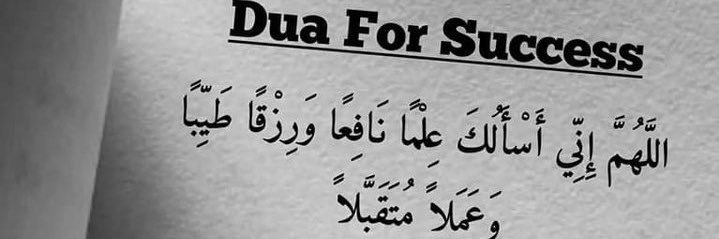 Dua For Success
اللَّهُمَّ إِنِّي أَسْأَلُكَ عِلْمًا نَافِعًا وَرِزْقًا طَيِّبًا
وَعَمَلاً مُتَقَبَّلاً